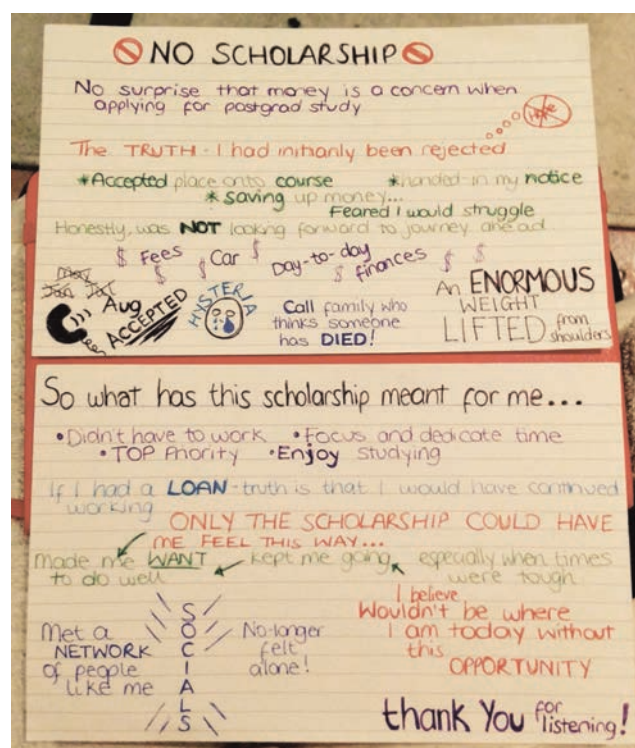 NO SCHOLARSHIP
No surprise that money is a concern when
applying for postgrad study
Hope
The TRUTH - I had initially been rejected
*Accepted place onto course *handed in my notice
* saving up money...
Feared I would struggle
Honestly, was NOT looking forward to journey ahead
$ Fees $ $ Car $ Day-to-day $ finances $ $
May
Jun Jul
Aug
ACCEPTED
HYSTERIA
Call family who
thinks someone
has DIED!
An ENORMOUS
WEIGHT
LIFTED from
shoulders
So what has this scholarship meant for me...
•Didn't have to work •Focus and dedicate time
•TOP Priority •Enjoy studying
If I had a LOAN - truth is that I would have continued
working
ONLY THE SCHOLARSHIP COULD HAVE
ME FEEL THIS WAY...
Made me WANT kept me going, especially when times
to do well were tough
I believe
Wouldn't be where
I am today without
this
OPPORTUNITY
Met a
NETWORK
of people
like me
SOCIALS
No-longer
felt
alone!
thank You for
listening!